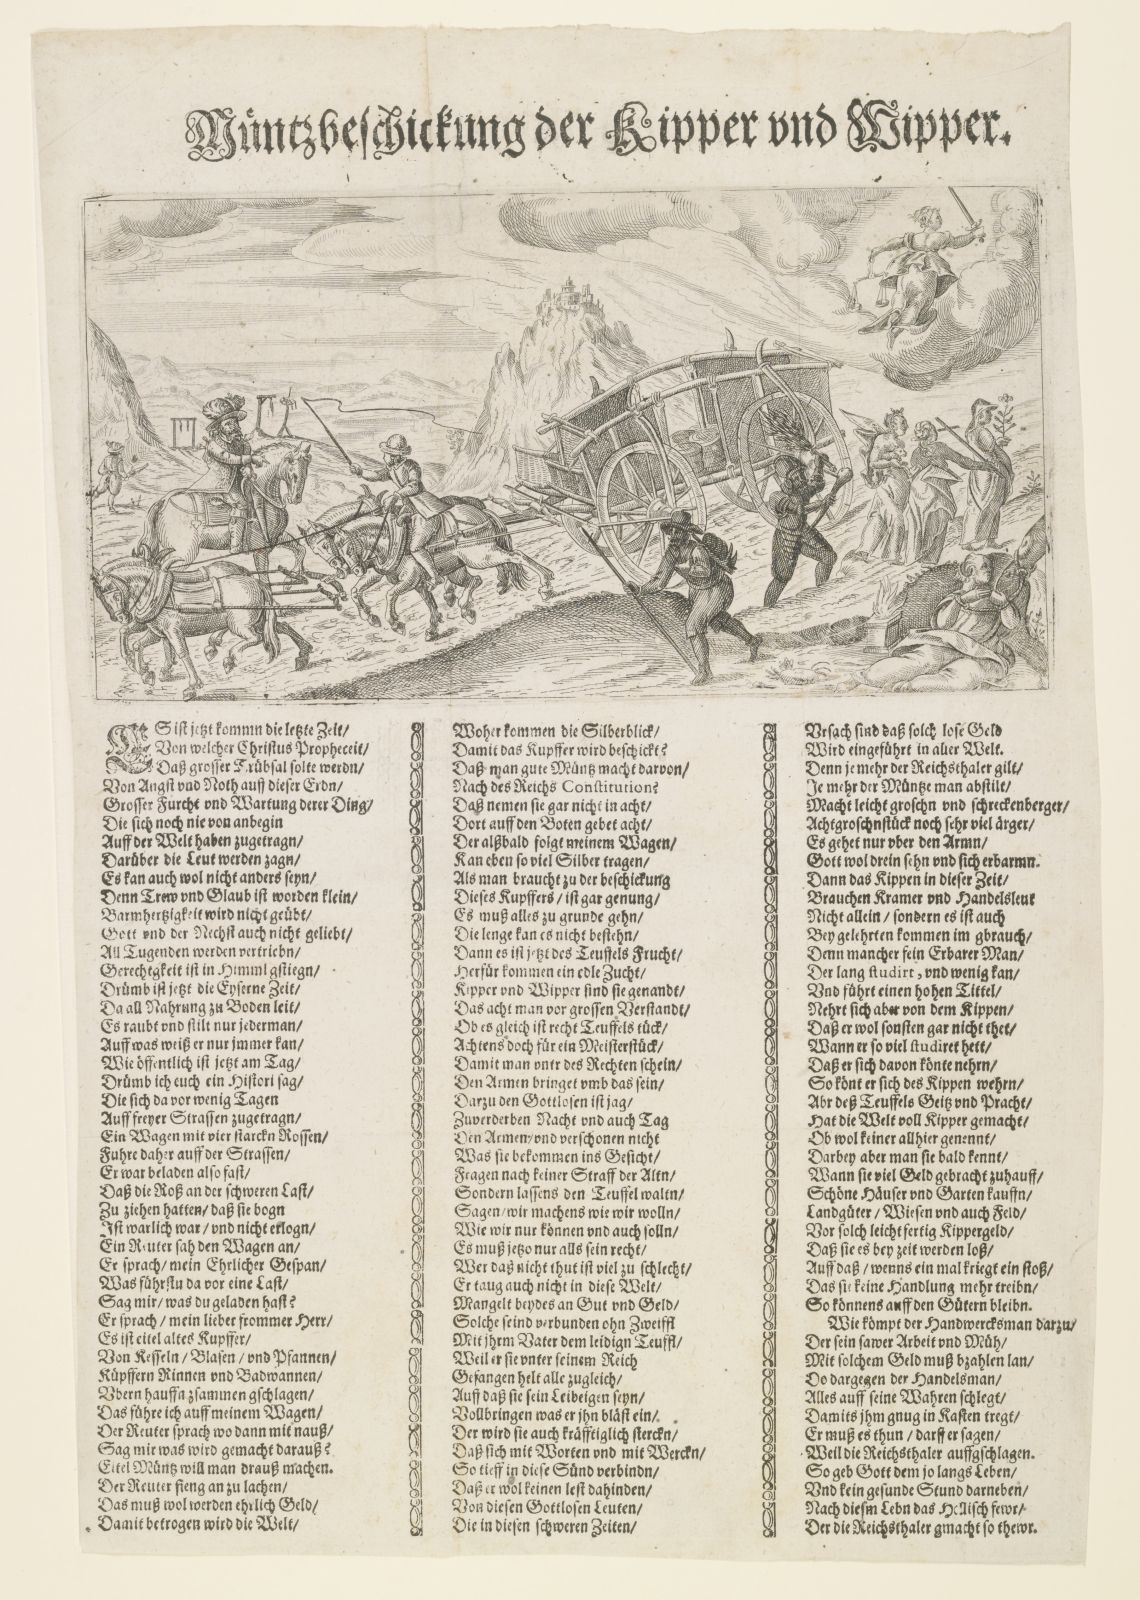 Müntzbeschickung der Kipper vnd Wipper.
ES ist jetzt kommn die letzte Zeit/
Von welcher Christus Propheceit/
Daß grosser Trübsal solte werdn/
Von Angst vnd Noth auff dieser Erdn/
Grosser Furcht vnd Wartung derer Ding/
Die sich noch nie von anbegin
Auff der Welt haben zugetragn/
Darüber die Leut werden zagn/
Es kan auch wol nicht anders seyn/
Denn Trew vnd Glaub ist worden klein/
Barmhertzigkeit wird nicht geübt/
Gott vnd der Nechst auch nicht geliebt/
All Tugenden werden vertriebn/
Gerechtgkeit ist in Himml gstiegn/
Drümb ist jetzt die Eyserne Zeit/
Da all Nahrung zu Boden leit/
Es raubt vnd stilt nur jederman/
Auff was weiß er nur jmmer kan/
Wie öffentlich ist jetzt am Tag/
Drümb ich euch ein Histori sag/
Die sich da vor wenig Tagen
Auff freyer Strassen zugetragn/
Ein Wagen mit vier starckn Rossen/
Fuhre daher auff der Strassen/
Er war beladen also fast/
Daß die Roß an der schweren Last/
Zu ziehen hatten/ daß sie bogn
Ist warlich war/ vnd nicht erlogn/
Ein Reuter sah den Wagen an/
Er sprach/ mein Ehrlicher Gespan/
Was führstu da vor eine Last/
Sag mir/ was du geladen hast?
Er sprach/ mein lieber frommer Herr/
Es ist eitel altes Kupffer/
Von Kesseln/ Blasen/ vnd Pfannen/
Küpffern Rinnen vnd Badwannen/
Vbern hauffn zsammen gschlagen/
Das führe ich auff meinem Wagen/
Der Reuter sprach wo dann mit nauß/
Sag mir was wird gemacht darauß?
Eitel Müntz will man drauß machen.
Der Reuter fieng an zu lachen/
Das muß wol werden ehrlich Geld/
Damit betrogen wird die Welt/
Woher kommen die Silberblick/
Damit das Kupffer wird beschickt?
Daß man gute Müntz macht darvon/
Nach des Reichs Constitution?
Daß nemen sie gar nicht in acht/
Dort auff den Boten gebet acht/
Der alßbald folgt meinem Wagen/
Kan eben so viel Silber tragen/
Als man braucht zu der beschickung
Dieses Kupffers/ ist gar genung/
Es muß alles zu grunde gehn/
Die lenge kan es nicht bestehn/
Dann es ist jetzt des Teuffels Frucht/
Herfür kommen ein edle Zucht/
Kipper vnd Wipper sind sie genandt/
Das acht man vor grossen Verstandt/
Ob es gleich ist recht Teuffels tück/
Achtens doch für ein Meisterstück/
Damit man vntr des Rechten schein/
Den Armen bringet vmb das sein/
Darzu den Gottlosen ist jag/
Zuverderben Nacht vnd auch Tag
Den Armen/ vnd verschonen nicht
Was sie bekommen ins Gesicht/
Fragen nach keiner Straff der Altn/
Sondern lassens den Teuffel waltn/
Sagen/ wir machens wie wir wolln/
Wie wir nur können vnd auch solln/
Es muß jetzo nur alls sein recht/
Wer daß nicht thut ist viel zu schlecht/
Er taug auch nicht in diese Welt/
Mangelt beydes an Gut vnd Geld/
Solche seind verbunden ohn Zweiffl
Mit jhrm Vater dem leidign Teuffl/
Weil er sie vnter seinem Reich
Gefangen helt alle zugleich/
Auff daß sie sein Leibeigen seyn/
Vollbringen was er jhn bläst ein/
Der wird sie auch kräfftiglich sterckn/
Daß sich mit Worten vnd mit Werckn/
So tieff in diese Sünd verbindn/
Daß er wol keinen lest dahinden/
Von diesen Gottlosen Leuten/
Die in diesen schweren Zeiten/
Vrsach sind daß solch lose Geld
Wird eingeführt in aller Welt.
Denn je mehr der Reichsthaler gilt/
Je mehr der Müntze man abstilt/
Macht leicht groschn vnd schreckenberger/
Achtgroschnstück noch sehr viel ärger/
Es gehet nur vber den Armn/
Gott wol drein sehn vnd sich erbarmn.
Dann das Kippen in dieser Zeit/
Brauchen Kramer vnd Handelsleut
Nicht allein/ sondern es ist auch
Bey gelehrten kommen im gbrauch/
Denn mancher fein Erbarer Man/
Der lang studirt, vnd wenig kan/
Vnd führt einen hohen Tittel/
Nehrt sich aber von dem Kippen/
Daß er wol sonsten gar nicht thet/
Wann er so viel studiret hett/
Daß er sich davon könte nehrn/
So könt er sich des Kippen wehrn/
Abr deß Teuffels Geitz vnd Pracht/
Hat die Welt voll Kipper gemacht/
Ob wol keiner allhier genennt/
Darbey aber man sie bald kennt/
Wann sie viel Geld gebracht zuhauff/
Schöne Häuser vnd Garten kauffn/
Landgüter/ Wiesen vnd auch Feld/
Vor solch leichtfertig Kippergeld/
Daß sie es bey zeit werden loß/
Auff daß/ wenns ein mal kriegt ein stoß/
Das sie keine Handlung mehr treibn/
So könnens auff den Gütern bleibn.
Wie kömpt der Handwercksman darzu/
Der sein sawer Arbeit vnd Müh/
Mit solchem Geld muß bzahlen lan/
Do dargegen der Handelsman/
Alles auff seine Wahren schlegt/
Damits jhm gnug in Kasten tregt/
Er muß es thun/ darff er sagen/
Weil die Reichsthaler auffgschlagen.
So geb Gott dem jo langs Leben/
Vnd kein gesunde Stund darneben/
Nach diesm Lebn das Hellisch fewr/
Der die Reichsthaler gmacht so thewr.